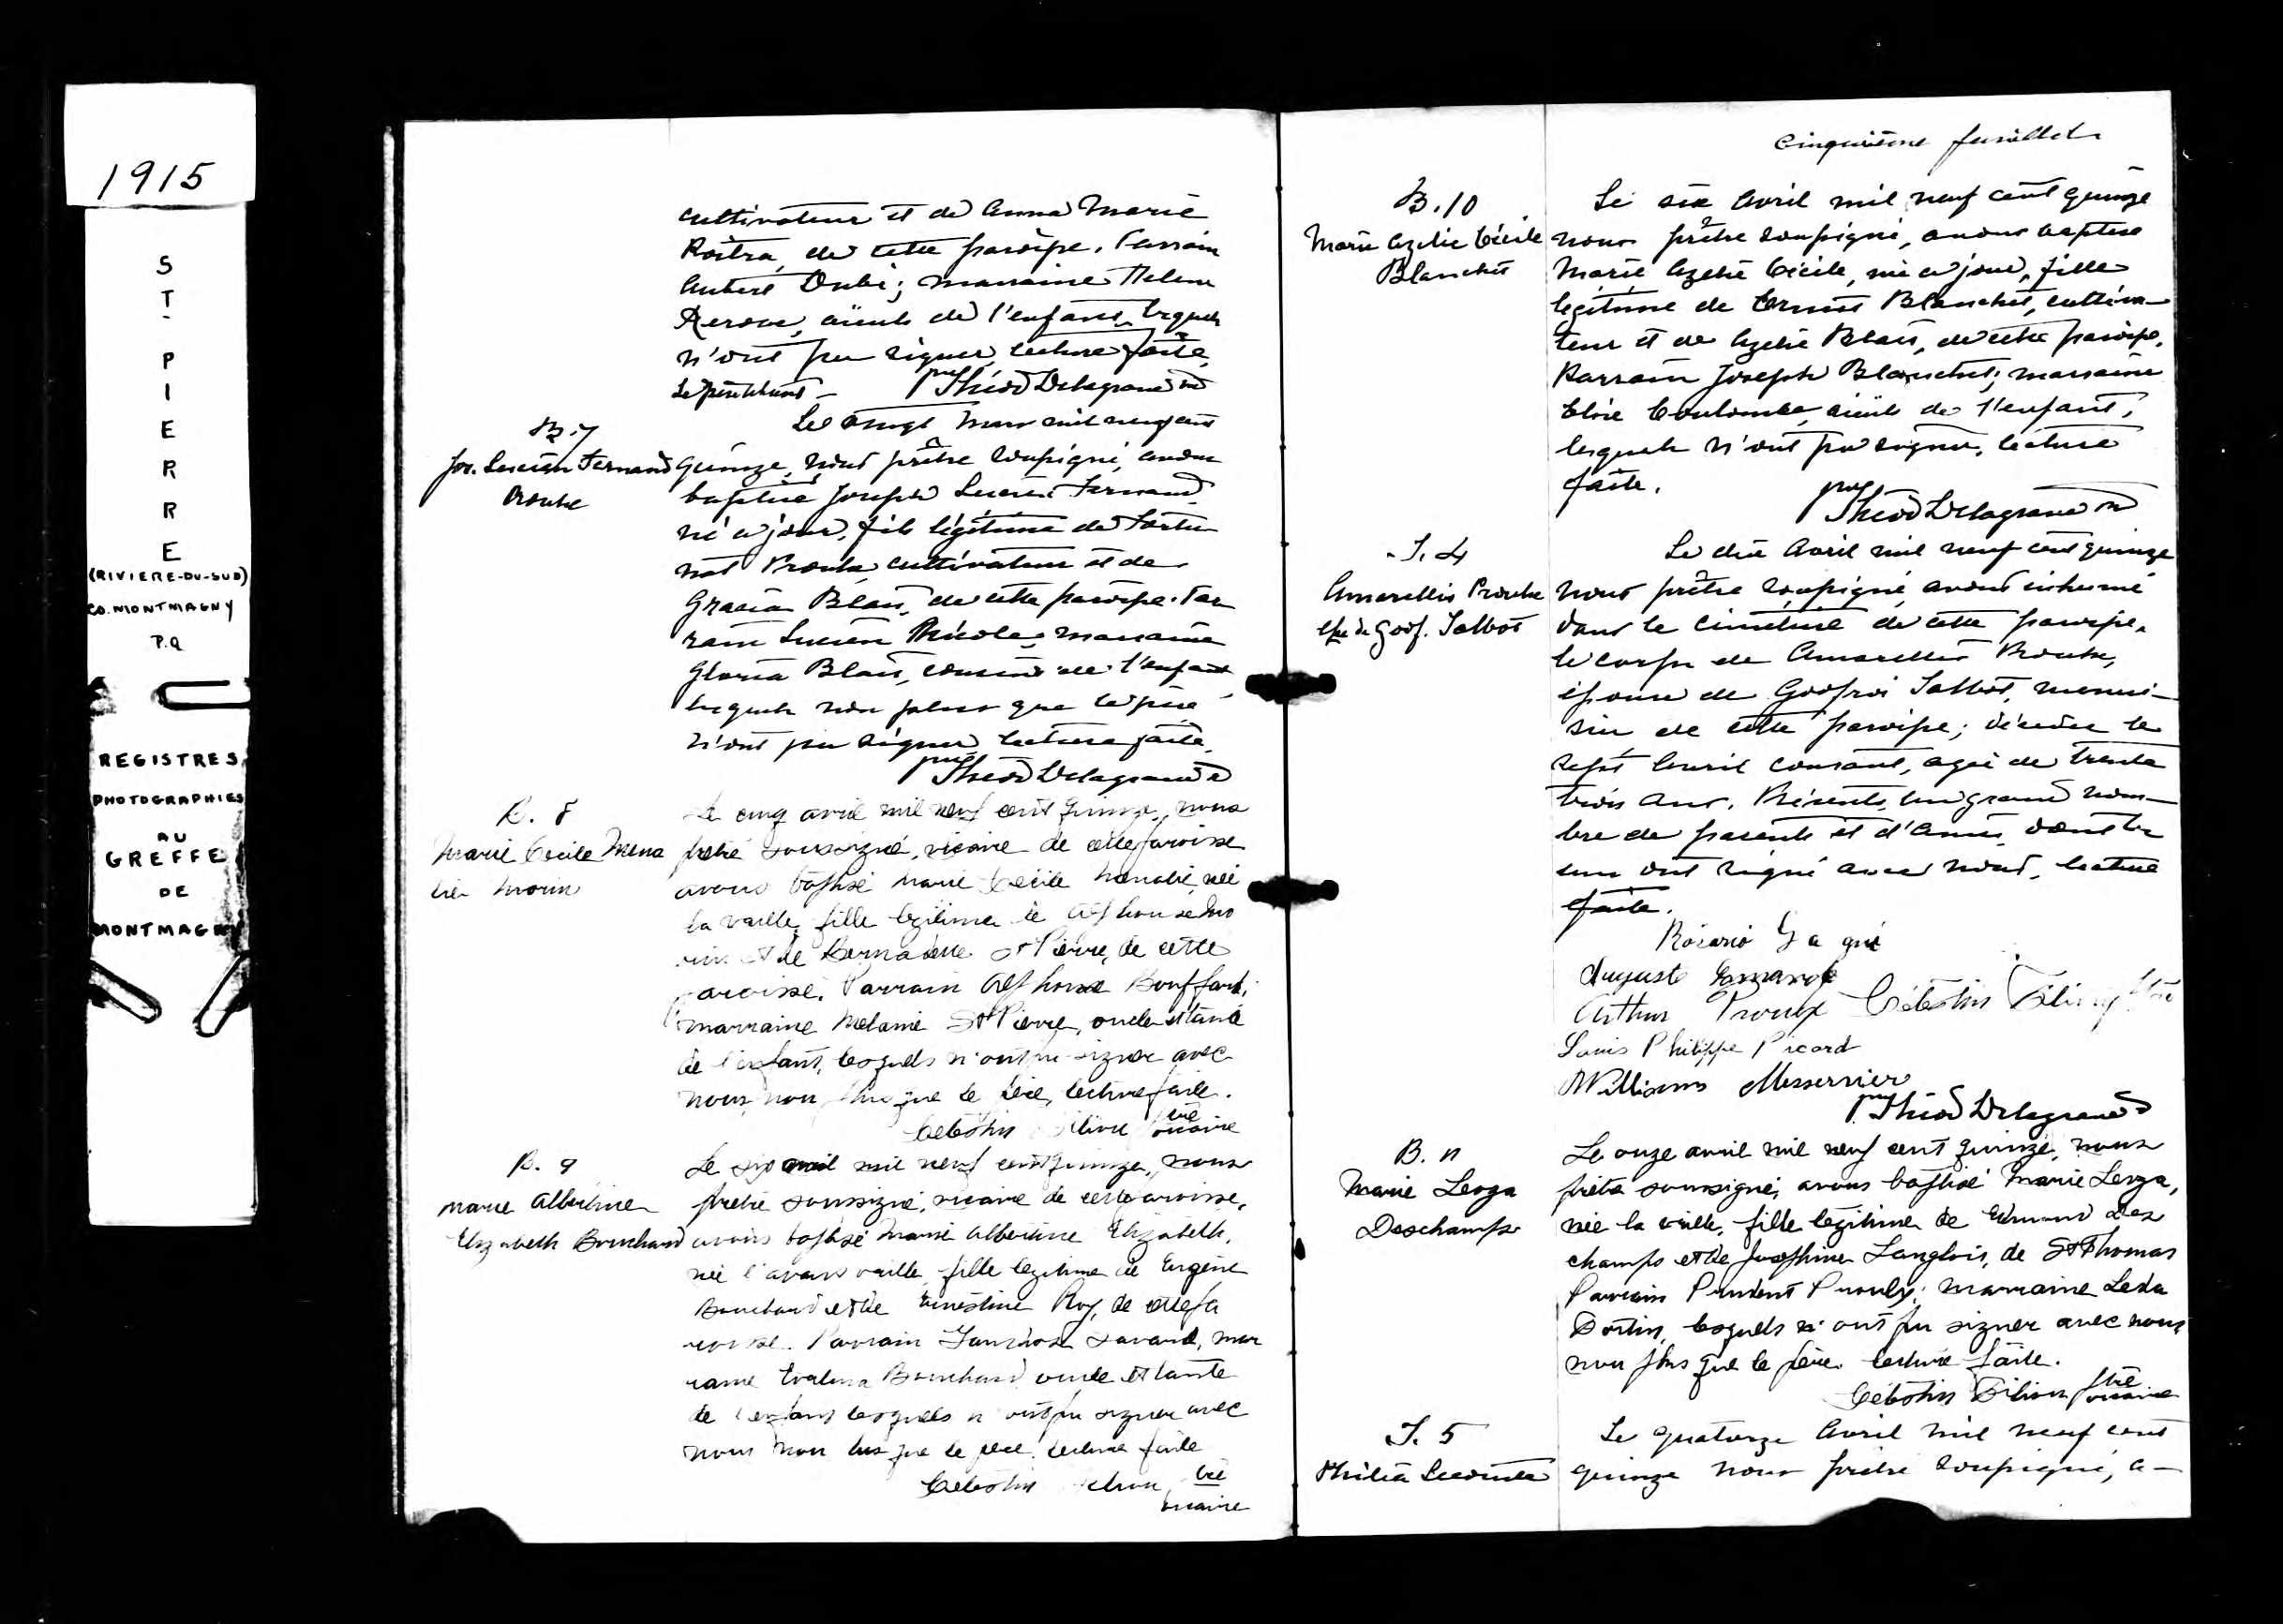 1915
ST-PIERRE
(RIVIERE-DU-SUD)
CO. MONTMAGNY
P.Q
REGISTRES
PHOTOGRAPHIES
AU
GREFFE
DE
MONTMAGNY
cultivateur et de Anna Marie
de cette paroisse. Parrain
Dubé; marraine Helene
de l'enfant lesquels
n'ont pu signer, lecture faite.
Théod Delagrave
B. 7
Jos. Lucien Fernand
Proulx
Le onze Mars mil neuf cent
quinze, nous prêtre soussigné, avons
baptisé Joseph Lucien Fernand
né ce jour, fils légitime de Fortu
nat Proulx cultivateur et de
Gracia Blais, de cette paroisse. Par
rain Lucien Nicole, marraine
Gloria Blais, cousins de l'enfant
lesquels non plus que le père
n'ont pu signer, lecture faite.
Théod Delagrave
B. 8
Marie Cecile Mena
lie Morin
Le cinq avril mil neuf cent quinze, nous
prêtre soussigné, vicaire de cette paroisse
avons baptisé Marie Cecile Menalie, née
la veille, fille legitime de Alphonse Mo
rin et de Bernadette St Pierre, de cette
paroisse. Parrain Alphonse Bouffard,
marraine Melanie St Pierre, oncle et tante
de l'enfant, lesquels n'ont pu signer avec
nous, non plus que le père, lecture faite.
Célestin Filion ptre
vicaire
B. 9
Marie Albertine
Elizabeth Bouchard
Le six avril mil neuf cent quinze, nous
prêtre soussigné, vicaire de cette paroisse,
avons baptisé Marie Albertine Elizabeth,
née l'avant veille, fille legitime de Eugène
Bouchard et de Ernestine Roy, de cette pa
roisse. Parrain Savard, mar
raine Evalina Bouchard oncle et tante
de l'enfant lesquels n'ont pu signer avec
nous non plus que le père, lecture faite
Célestin Filion ptre
vicaire
Cinquième feuillet
B. 10
Marie Azelie Cécile
Blanchet
Le six Avril mil neuf cent quinze
nous prêtre soussigné, avons baptisé
Marie Azelie Cécile, née ce jour, fille
légitime de Ernest Blanchet, cultiva-
teur et de Azelie Blais, de cette paroisse,
Parrain Joseph Blanchet; marraine
Eloïse Coulombe, aïeuls de l'enfant,
lesquels n'ont pu signer, lecture
faite.
Théod Delagrave
S. 4
Amarellis Proulx
Epse de Godf. Talbot
Le dix Avril mil neuf cent quinze
nous prêtre soussigné avons inhumé
dans le cimetière de cette paroisse,
le corps de Amarellis Proulx,
épouse de Godfroi Talbot, menui-
sier de cette paroisse; décédée le
sept Avril courant, agée de trente
trois ans. Présents, un grand nom-
bre de parents et d'amis, dont les
uns ont signé avec nous, lecture
faite.
Rosario Gagné
Auguste
Arthur Proulx Célestin Filion Ptre
Louis Philippe Picard
Williams Messervier
Théod Delagrave
B. 11
Marie Lesza
Deschamps
Le onze avril mil neuf cent quinze, nous
prêtre soussigné, avons baptisé Marie Lesza,
née la veille, fille légitime de Edmond Des
champs et de Josephine Langlois, de St Thomas
Parrain Prudent Proulx; marraine Leda
Fortin, lesquels n'ont pu signer avec nous
non plus que le père. lecture faite.
Célestin Filion ptre
vicaire
S. 5
Lecomte
Le quatorze Avril mil neuf cent
quinze nous prêtre soussigné, a-